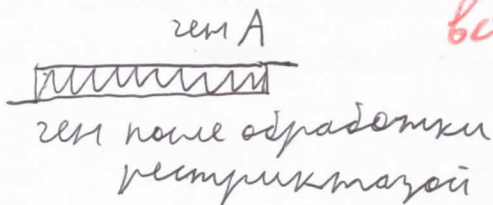 ген А
вс
ген после обработки
рестриктазой